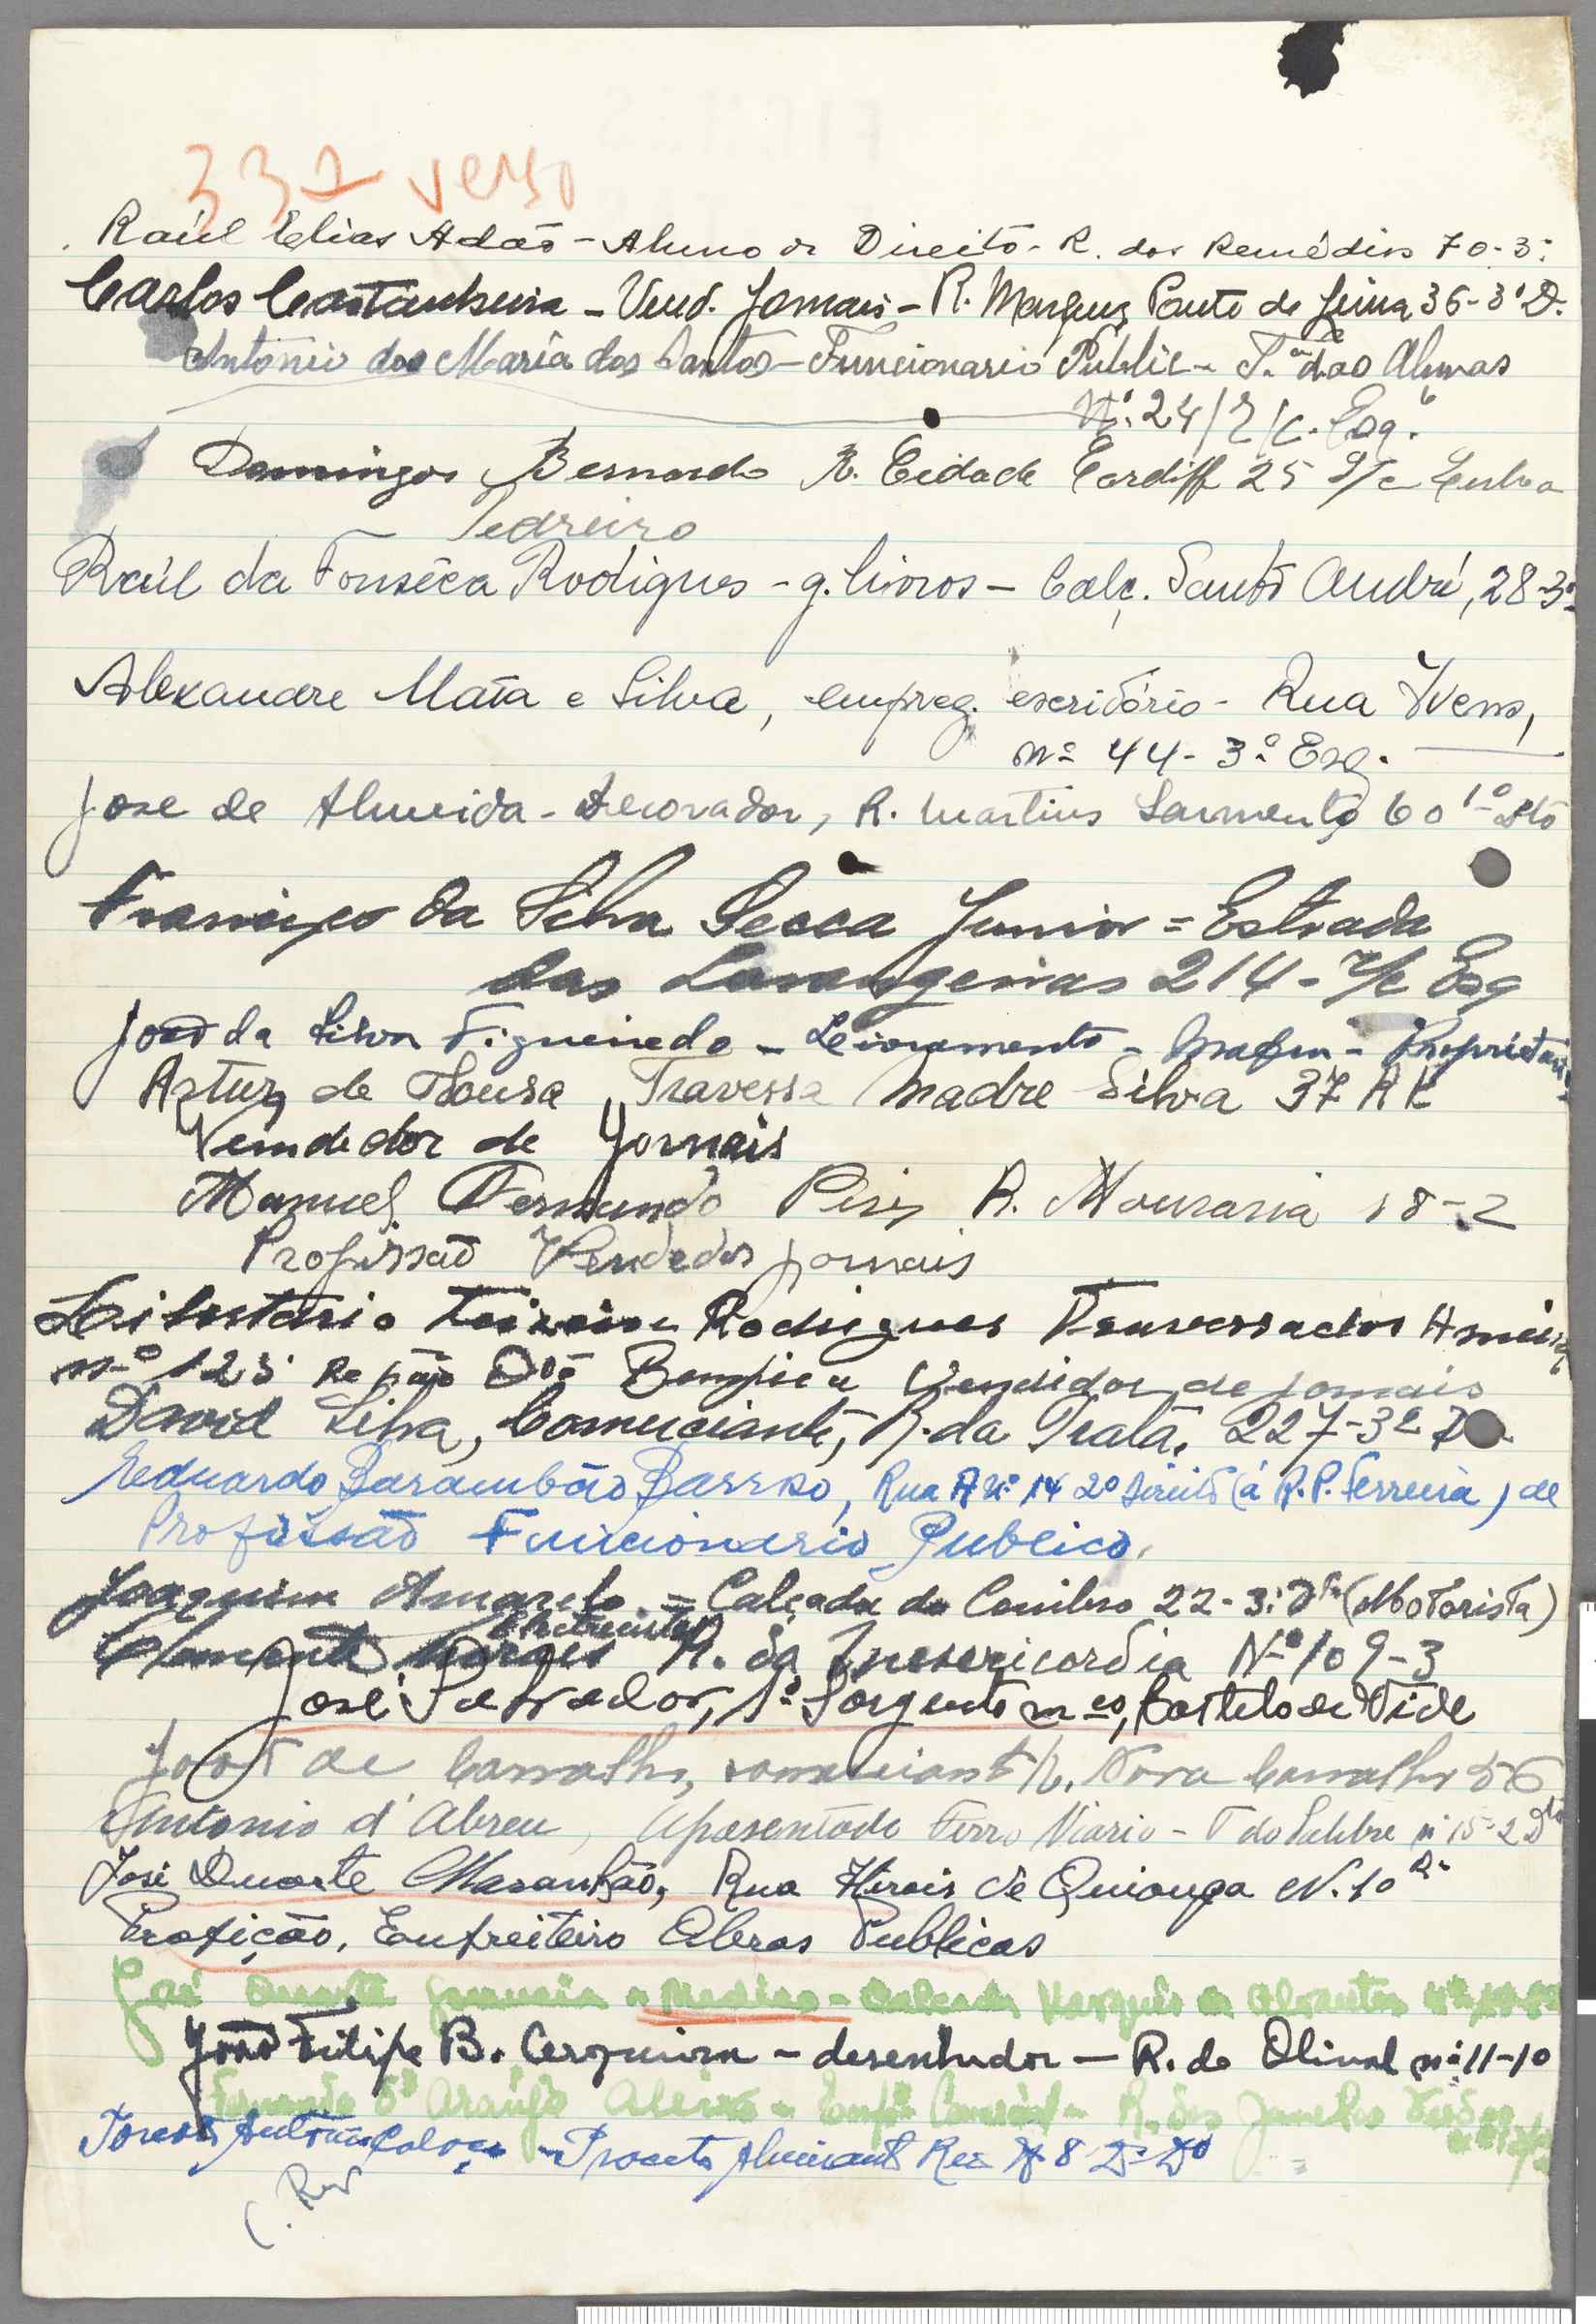 331 verso
Raúl Elias Adão - Aluno de Direito - R. dos Remédios 70-3º
Carlos Castanheira - Vend. Jornais - R. Marquez Ponte de Lima 36-3º D.
António dos Maria dos Santos - Funcionario Public - T.ª das Almas
Nº. 24/R/c. Esq.
Domingos Bernardo R. Cidade Cardiff 25 R/c Lisboa
Pedreiro
Raúl da Fonsêca Rodrigues - g. livros - Calç. Santo André, 28-3º
Alexandre Mata e Silva, empreg. escritório - Rua Ivens,
nº 44 - 3º Esq.
Jose de Almeida - Decorador, R. Martins Sarmento 60 1º Dto
Francisco da Silva Júnior = Estrada
das Larangeiras 214 - r/c Esq
João da Silva Figueiredo - Livramento - Mafra - Proprietario
Artur de Sousa Travessa Madre Silva 37 A
Vendedor de Jornais
Manuel Fernando Pires R. Mouraria 18-2
Profissão Vendedor jornais
Libertário Teixeira Rodrigues Travessa dos
nº 123 Benfica Vendidor de jornais
David Silva, Comerciante, R. da Prata, 227-3º D
Eduardo Barambão Barros, Rua A Nº 14 2º direito (á R. P. Ferreira) de
Profissão Funcionario Publico.
Joaquim Amarelo = Calçada do Combro 22-3º Dto (Motorista)
Electricista
Clemente Borges R. da Misericordia Nº 109-3
José Salvador, 1º Sargento, Castelo de Vide
João de Carvalho, comerciante R. Nova Carvalho 56
Antonio d'Abreu, Aposentado Ferro Viario - T do nº 15-2 Dto
José Duarte Maranhão, Rua Herois de Quionga N. 10
Profição, Enfreiteiro Obras Publicas
José Duarte - Calçada Marquês de Abrantes
João Filipe B. Cerqueira - desenhador - R. do Olival nº 11-1º
Fernando de Araújo R. das Janelas Verdes
António - Praceta Almirante